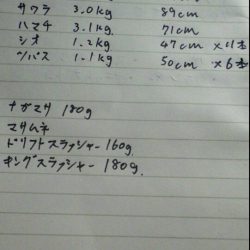 サワラ 3.0kg 89cm
ハマチ 3.1kg 71cm
シオ 1.2kg 47cm ×11本
ツバス 1.1kg 50cm ×6本
ナガマサ 180g
マサムネ
ドリフトスラッシャー 160g
キングスラッシャー 180g.